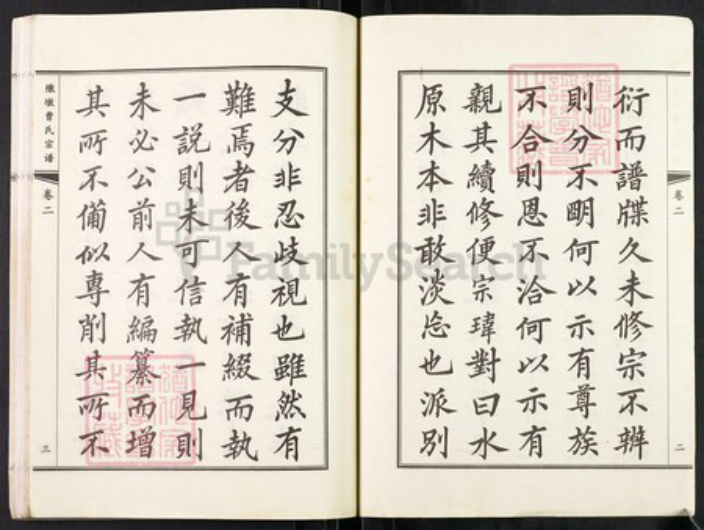 衍而譜牒久未修宗不辨
則分不明何以示有尊族
不合則恩不洽何以示有
親其續修便宗瑋對曰水
原木本非敢淡忘也派別
卷二
二
支分非忍歧視也雖然有
難焉者後人有補綴而執
一說則未可信執一見則
未必公前人有編纂而增
其所不備似專削其所不
曹氏宗谱
卷二
三
FamilySearch